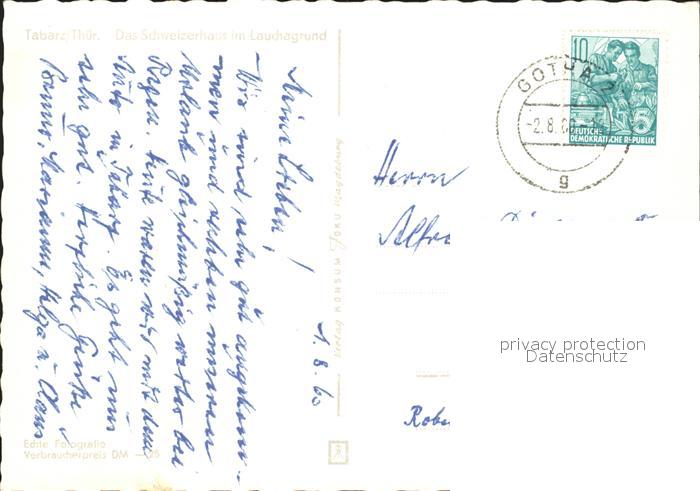 Tabarz/Thür. Das Schweizerhaus im Lauchagrund
1.8.60
Meine Lieben!
Wir sind sehr gut angekom-
men und setzen unseren
Urlaub gleichmäßig weiter bei
Regen. Heute waren wir mit dem
Auto in Tabarz. Es geht uns
sehr gut. Herzliche Grüße
Marianne, Helga u. Klaus
Echte Fotografie
Verbraucherpreis DM —25
Verlag KONSUM FOKU Magdeburg
10
DEUTSCHE
DEMOKRATISCHE REPUBLIK
5
GOTHA 2
-2.8.60-
g
Herrn
Alfre
privacy protection
Datenschutz
Robe